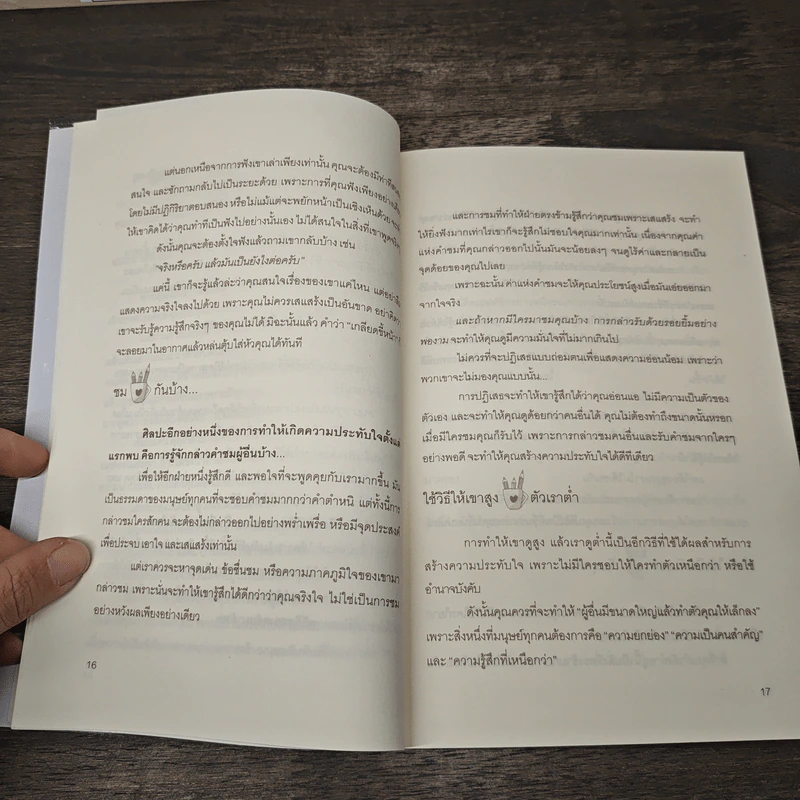 แต่นอกเหนือจากการฟังเขาเล่าเพียงเท่านั้น คุณจะต้องมีท่าที
สนใจ และซักถามกลับไปเป็นระยะด้วย เพราะการที่คุณฟังเพียงอย่าง
โดยไม่มีปฏิกิริยาตอบสนอง หรือไม่แม้แต่จะพยักหน้าเป็นเชิงเห็นด้วย
ให้เขาคิดได้ว่าคุณทำทีเป็นฟังไปอย่างนั้นเอง ไม่ได้สนใจในสิ่งที่เขาพูด
ดังนั้นคุณจะต้องตั้งใจฟังแล้วถามเขากลับบ้าง เช่น
"จริงหรือครับ แล้วมันเป็นยังไงต่อครับ"
แค่นี้ เขาก็จะรู้แล้วล่ะว่าคุณสนใจเรื่องของเขาแค่ไหน แต่อย่าลืม
แสดงความจริงใจลงไปด้วย เพราะคุณไม่ควรเสแสร้งเป็นอันขาด อย่าคิดว่า
เขาจะรับรู้ความรู้สึกจริงๆ ของคุณไม่ได้ มิฉะนั้นแล้ว คำว่า "เกลียดขี้หน้า"
จะลอยมาในอากาศแล้วหล่นตุ้บใส่หัวคุณได้ทันที
ชม กันบ้าง...
ศิลปะอีกอย่างหนึ่งของการทำให้เกิดความประทับใจตั้งแต่
แรกพบ คือการรู้จักกล่าวคำชมผู้อื่นบ้าง...
เพื่อให้อีกฝ่ายหนึ่งรู้สึกดี และพอใจที่จะพูดคุยกับเรามากขึ้น มัน
เป็นธรรมดาของมนุษย์ทุกคนที่จะชอบคำชมมากกว่าคำตำหนิ แต่ทั้งนี้การ
กล่าวชมใครสักคน จะต้องไม่กล่าวออกไปอย่างพร่ำเพรื่อ หรือมีจุดประสงค์
เพื่อประจบ เอาใจ และเสแสร้งเท่านั้น
แต่เราควรจะหาจุดเด่น ข้อชื่นชม หรือความภาคภูมิใจของเขามา
กล่าวชม เพราะนั่นจะทำให้เขารู้สึกได้ดีกว่าว่าคุณจริงใจ ไม่ใช่เป็นการชม
อย่างหวังผลเพียงอย่างเดียว
16
และการชมที่ทำให้ฝ่ายตรงข้ามรู้สึกว่าคุณชมเพราะเสแสร้ง จะทำ
ให้ยิ่งฟังมากเท่าไรเขาก็จะรู้สึกไม่ชอบใจคุณมากเท่านั้น เนื่องจากคุณค่า
แห่งคำชมที่คุณกล่าวออกไปนั้นมันจะน้อยลงๆ จนดูไร้ค่าและกลายเป็น
จุดด้อยของคุณไปเลย
เพราะฉะนั้น ค่าแห่งคำชมจะให้คุณประโยชน์สูงเมื่อมันเอ่ยออกมา
จากใจจริง
และถ้าหากมีใครมาชมคุณบ้าง การกล่าวรับด้วยรอยยิ้มอย่าง
พองาม จะทำให้คุณดูมีความมั่นใจที่ไม่มากเกินไป
ไม่ควรที่จะปฏิเสธแบบถ่อมตนเพื่อแสดงความอ่อนน้อม เพราะว่า
พวกเขาจะไม่มองคุณแบบนั้น...
การปฏิเสธจะทำให้เขารู้สึกได้ว่าคุณอ่อนแอ ไม่มีความเป็นตัวของ
ตัวเอง และจะทำให้คุณดูด้อยกว่าคนอื่นได้ คุณไม่ต้องทำถึงขนาดนั้นหรอก
เมื่อมีใครชมคุณก็รับไว้ เพราะการกล่าวชมคนอื่นและรับคำชมจากใครๆ
อย่างพอดี จะทำให้คุณสร้างความประทับใจได้ดีทีเดียว
ใช้วิธีให้เขาสูง ตัวเราต่ำ
การทำให้เขาดูสูง แล้วเราดูต่ำนี้เป็นอีกวิธีที่ใช้ได้ผลสำหรับการ
สร้างความประทับใจ เพราะไม่มีใครชอบให้ใครทำตัวเหนือกว่า หรือใช้
อำนาจบังคับ
ดังนั้นคุณควรที่จะทำให้ "ผู้อื่นมีขนาดใหญ่แล้วทำตัวคุณให้เล็กลง"
เพราะสิ่งหนึ่งที่มนุษย์ทุกคนต้องการคือ "ความยกย่อง" "ความเป็นคนสำคัญ"
และ "ความรู้สึกที่เหนือกว่า"
17